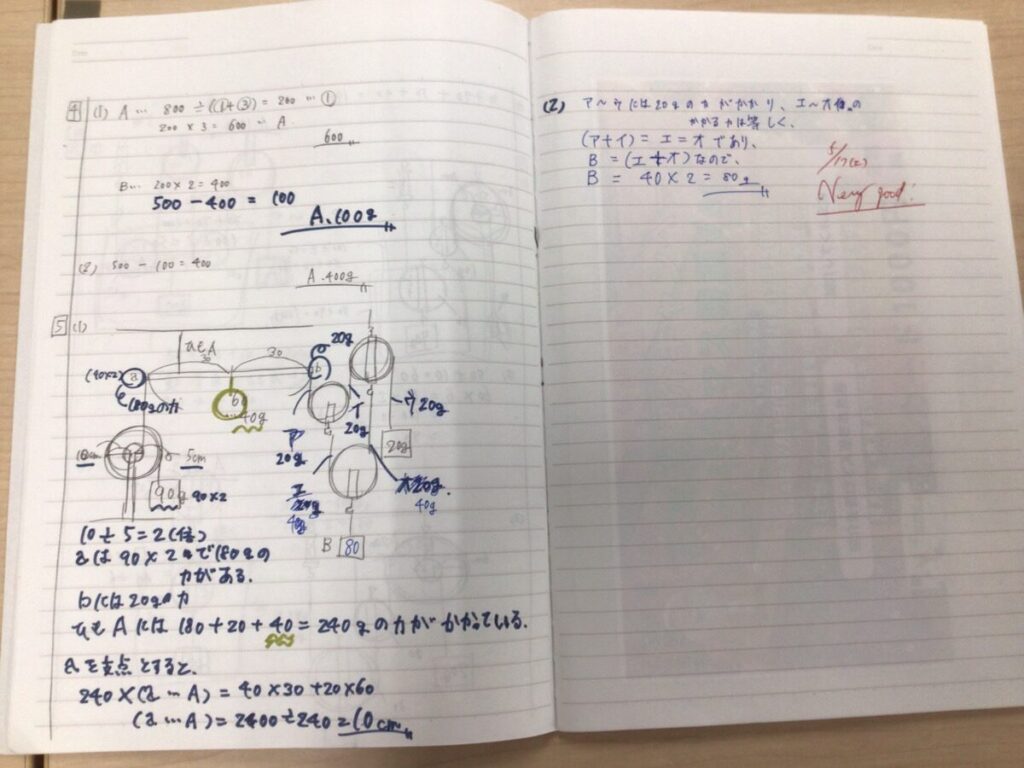 4 (1) A … 800 ÷ (①+③) = 200 … ①
200 × 3 = 600 … A
600
B… 200×2 = 400
500 - 400 = 100
A.100g
(2) 500 - 100 = 400
A.400g
5 (1)
ひもA
30
30
20g
(90×2)
a
b
180gの力
b
40g
イ
20g
ウ20g
ア
20g
20g
10cm
5cm
90g
90×2
エ
20g
40g
オ20g.
40g
B 80
10÷5=2(倍)
aは 90×2 なので180gの
力がある.
bには20gの力
ひもAには 180+20+40=240gの力がかかっている.
aを支点とすると、
240×(a…A) = 40×30+20×60
(a…A) = 2400÷240=10cm
(2) ア～ウには20gの力がかかり、エ～オ の
かかる力は等しく、
(ア+イ) = エ = オ であり、
B = (エ+オ) なので、
B = 40×2 = 80g
Very good!